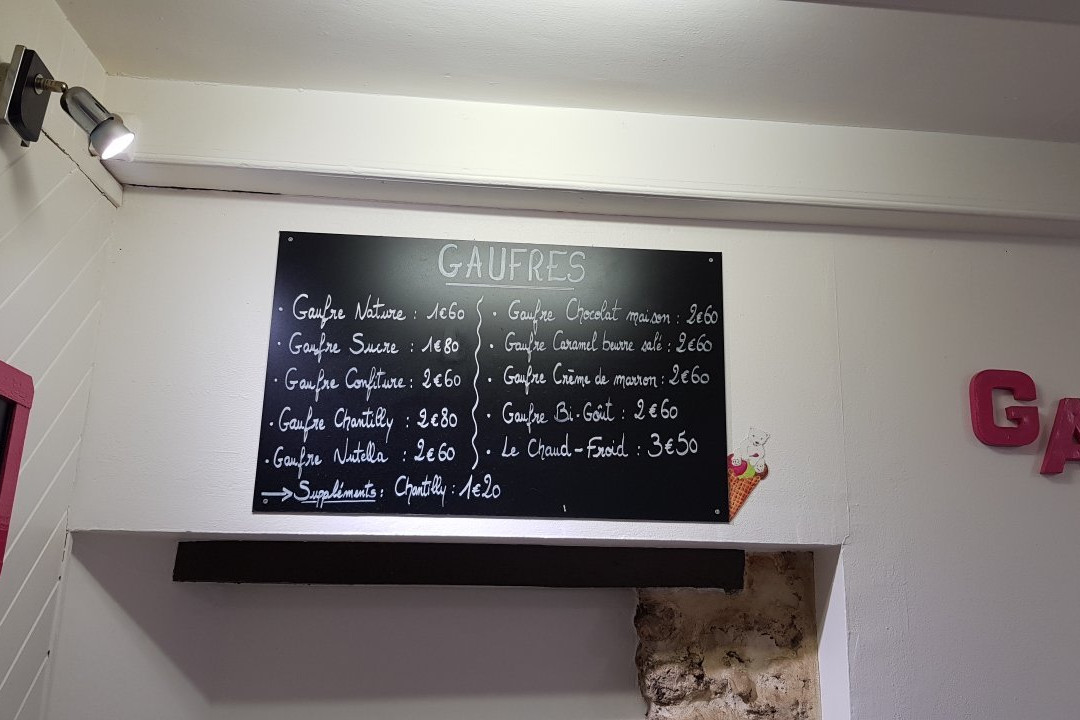 GAUFRES
· Gaufre Nature : 1€60
· Gaufre Sucre : 1€80
· Gaufre Confiture : 2€60
· Gaufre Chantilly : 2€80
· Gaufre Nutella : 2€60
→ Suppléments : Chantilly : 1€20
· Gaufre Chocolat maison : 2€60
· Gaufre Caramel beurre salé : 2€60
· Gaufre Crème de marron : 2€60
· Gaufre Bi-Goût : 2€60
· Le Chaud-Froid : 3€50
GA